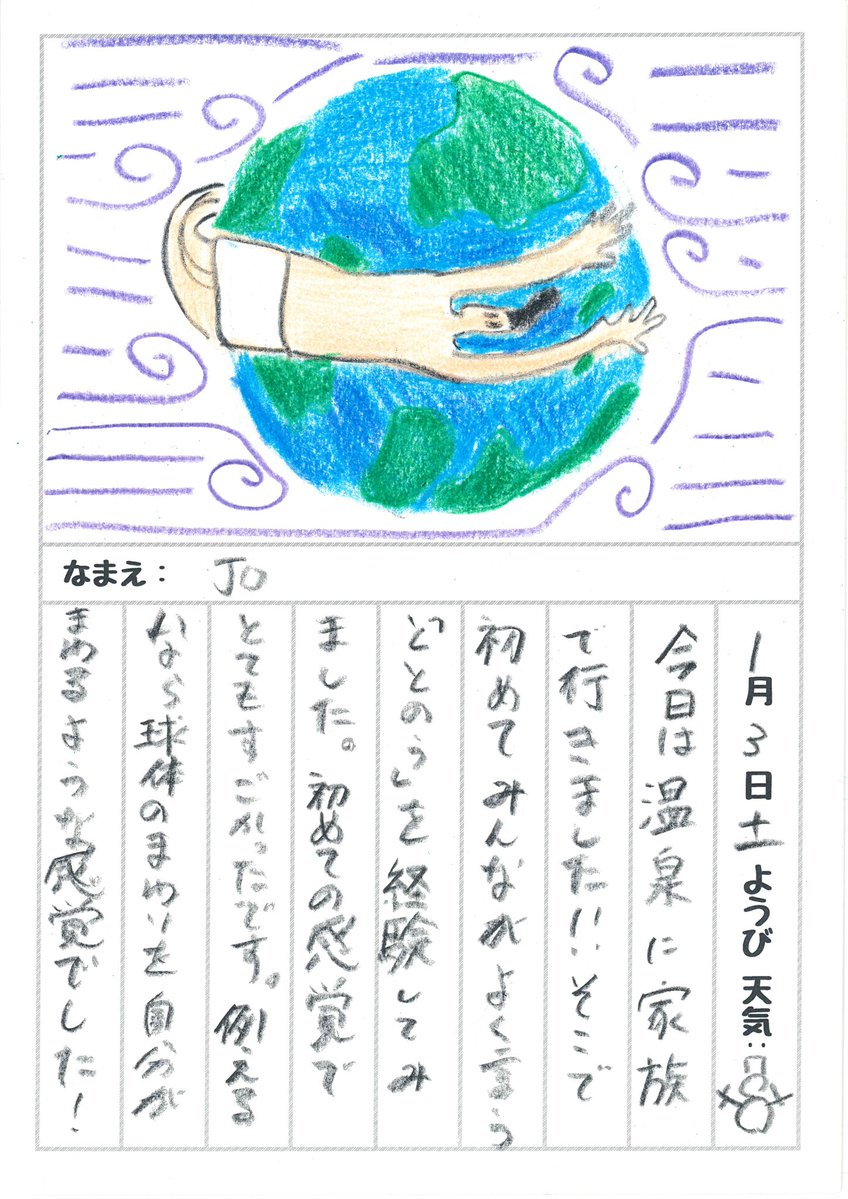 なまえ： JO
1月3日土ようび 天気：
今日は温泉に家族
で行きました!!そこで
初めてみんながよく言う
「ととのう」を経験してみ
ました。初めての感覚で
とてもすごかったです。例える
なら球体のまわりを自分が
まわるような感覚でした！